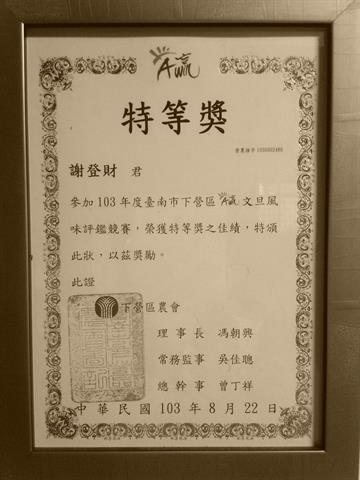 A贏
特等獎
營農推字1030002486
謝登財 君
參加103年度臺南市下營區A贏文旦風
味評鑑競賽，榮獲特等獎之佳績，特頒
此狀，以茲獎勵。
此證
下營區農會
理事長 馮朝興
常務監事 吳佳聰
總幹事 曾丁祥
中華民國103年8月22日